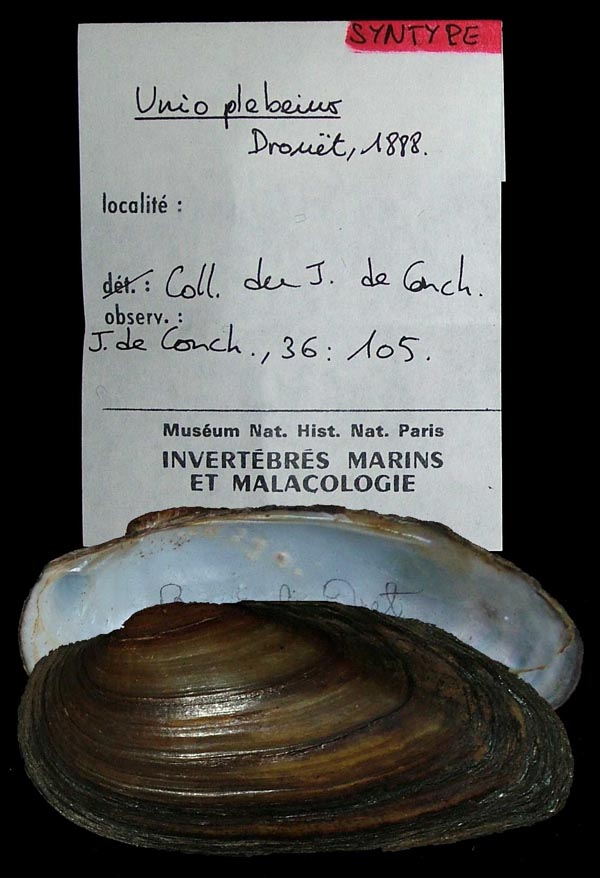 SYNTYPE
Unio plebeius
Drouët, 1888.
localité :
dét. : Coll. du J. de Conch.
observ. :
J. de Conch., 36 : 105.
Muséum Nat. Hist. Nat. Paris
INVERTÉBRÉS MARINS
ET MALACOLOGIE